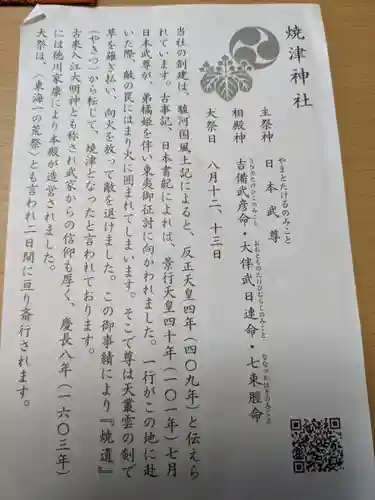 焼津神社
主祭神
やまとたけるのみこと
日本武尊
相殿神
きびのたけひこのみこと
吉備武彦命・
おおとものたけひむらじのみこと
大伴武日連命・
ななつかはぎのみこと
七束脛命
大祭日 八月十二、十三日
当社の創建は、駿河国風土記によると、反正天皇四年（四〇九年）と伝えら
れています。古事記、日本書紀によれば、景行天皇四十年（一〇一年）七月
日本武尊が、弟橘姫を伴い東夷御征討に向かわれました。一行がこの地に赴
いた際、敵の罠にはまり火に囲まれてしまいます。そこで尊は天叢雲の剣で
草を薙ぎ払い、向火を放って敵を退けました。この御事績により『焼遺』
（やきつ）から転じて、焼津となったと言われております。
古来入江大明神とも称され武家からの信仰も厚く、慶長八年（一六〇三年）
には徳川家康により本殿が造営されました。
大祭は、〈東海一の荒祭〉とも言われ二日間に亘り斎行されます。